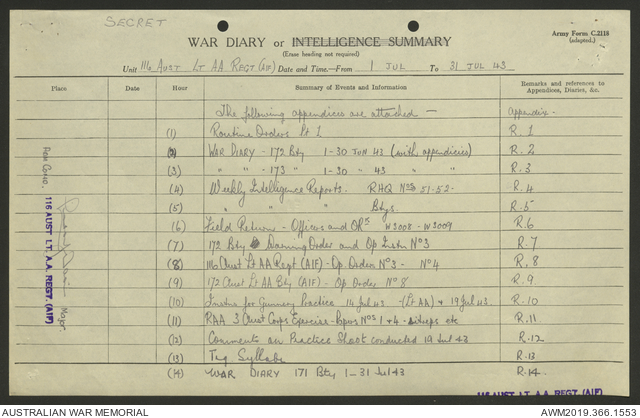 SECRET
WAR DIARY or INTELLIGENCE SUMMARY
(Erase heading not required)
Army Form C.2118
(adapted.)
Unit 116 AUST LT AA REGT (AIF) Date and Time.—From 1 JUL To 31 JUL 43
Place Date Hour Summary of Events and Information Remarks and references to Appendices, Diaries, &c.
The following appendices are attached — Appendix
(1) Routine Orders Pt 1 R.1
(2) WAR DIARY - 172 Bty 1-30 JUN 43 (with appendicies) R.2
(3) " " - 173 " 1-30 " 43 " " R.3
(4) Weekly Intelligence Reports. RHQ Nos 51-52 R.4
(5) " " " Btys. R.5
(6) Field Return - Officers and ORs W3008 - W3009 R.6
(7) 172 Bty Warning Order and Op Instn No 3 R.7
(8) 116 Aust Lt AA Regt (AIF) - Op. Orders No 3 - No 4 R.8
(9) 172 Aust Lt AA Bty (AIF) - Op Order No 8 R.9
(10) Instns for Gunnery Practice 14 Jul 43 - (Lt AA) & 19 Jul 43. R.10
(11) RAA 3 Aust Corps Exercise - Papers Nos 1 & 4 - Sitreps etc R.11
(12) Comments on Practice Shoot conducted 19 Jul 43 R.12
(13) Trg Syllabi R.13
(14) WAR DIARY 171 Bty 1-31 Jul 43 R.14
Major
116 AUST LT. A.A. REGT. (AIF)
116 AUST LT. A.A. REGT. (AIF)
AUSTRALIAN WAR MEMORIAL
AWM2019.366.1553